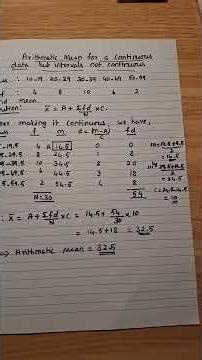 Arithmetic Mean for a Continuous
data but intervals not continuous
: 10-19 20-29 30-39 40-49 50-59
f : 4 8 10 6 2
nd mean.
ution: x̄ = A + Σfd/N × C.
ter making it continuous, we have,
f m d = m-A/C fd
-19.5 4 A 14.5 0 0
5-29.5 8 24.5 1 8
5-39.5 10 34.5 2 20
5-49.5 6 44.5 3 18
5-59.5 2 54.5 4 8
N=30 54
= 14.5
= 24.5
C = 24.5-14.5
= 10
: x̄ = A + Σfd/N × C = 14.5 + 54/30 × 10
= 14.5 + 18 = 32.5
⇒ Arithmetic mean = 32.5